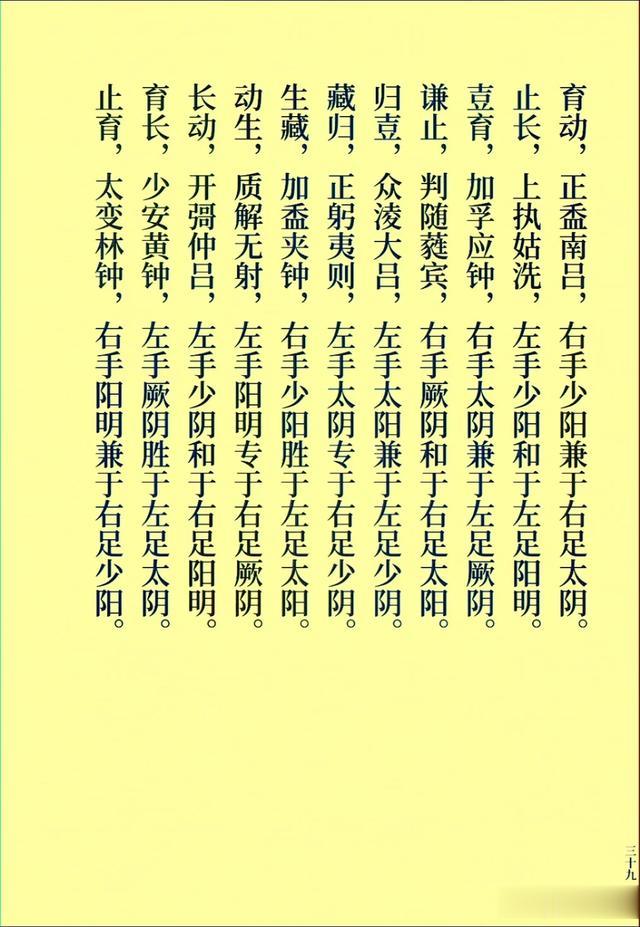 育动，正盉南吕，右手少阳兼于右足太阴。
止长，上执姑洗，左手少阳和于左足阳明。
壴育，加孚应钟，右手太阴兼于左足厥阴。
谦止，判随蕤宾，右手厥阴和于右足太阳。
归壴，众淩大吕，左手太阳兼于左足少阴。
藏归，正躬夷则，左手太阴专于右足少阴。
生藏，加盉夹钟，右手少阳胜于左足太阳。
动生，质解无射，左手阳明专于右足厥阴。
长动，开彁仲吕，左手少阴和于右足阳明。
育长，少安黄钟，左手厥阴胜于左足太阴。
止育，太变林钟，右手阳明兼于右足少阳。
三十九